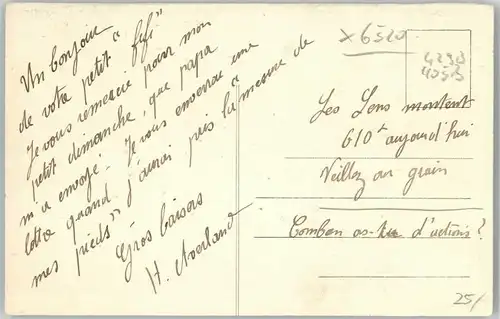 Un bonjour
de votre petit "fifi"
Je vous remercie pour mon
petit dimanche, que papa
m'a envoyé. Je vous enverrai une
lettre quand j'aurai pris "la mesure de
mes pieds"
Gros baisers
H.
x 6520
Les Lens montent
610 aujourd'hui
Veillez au grain
Combien as-tu d'actions?
25/